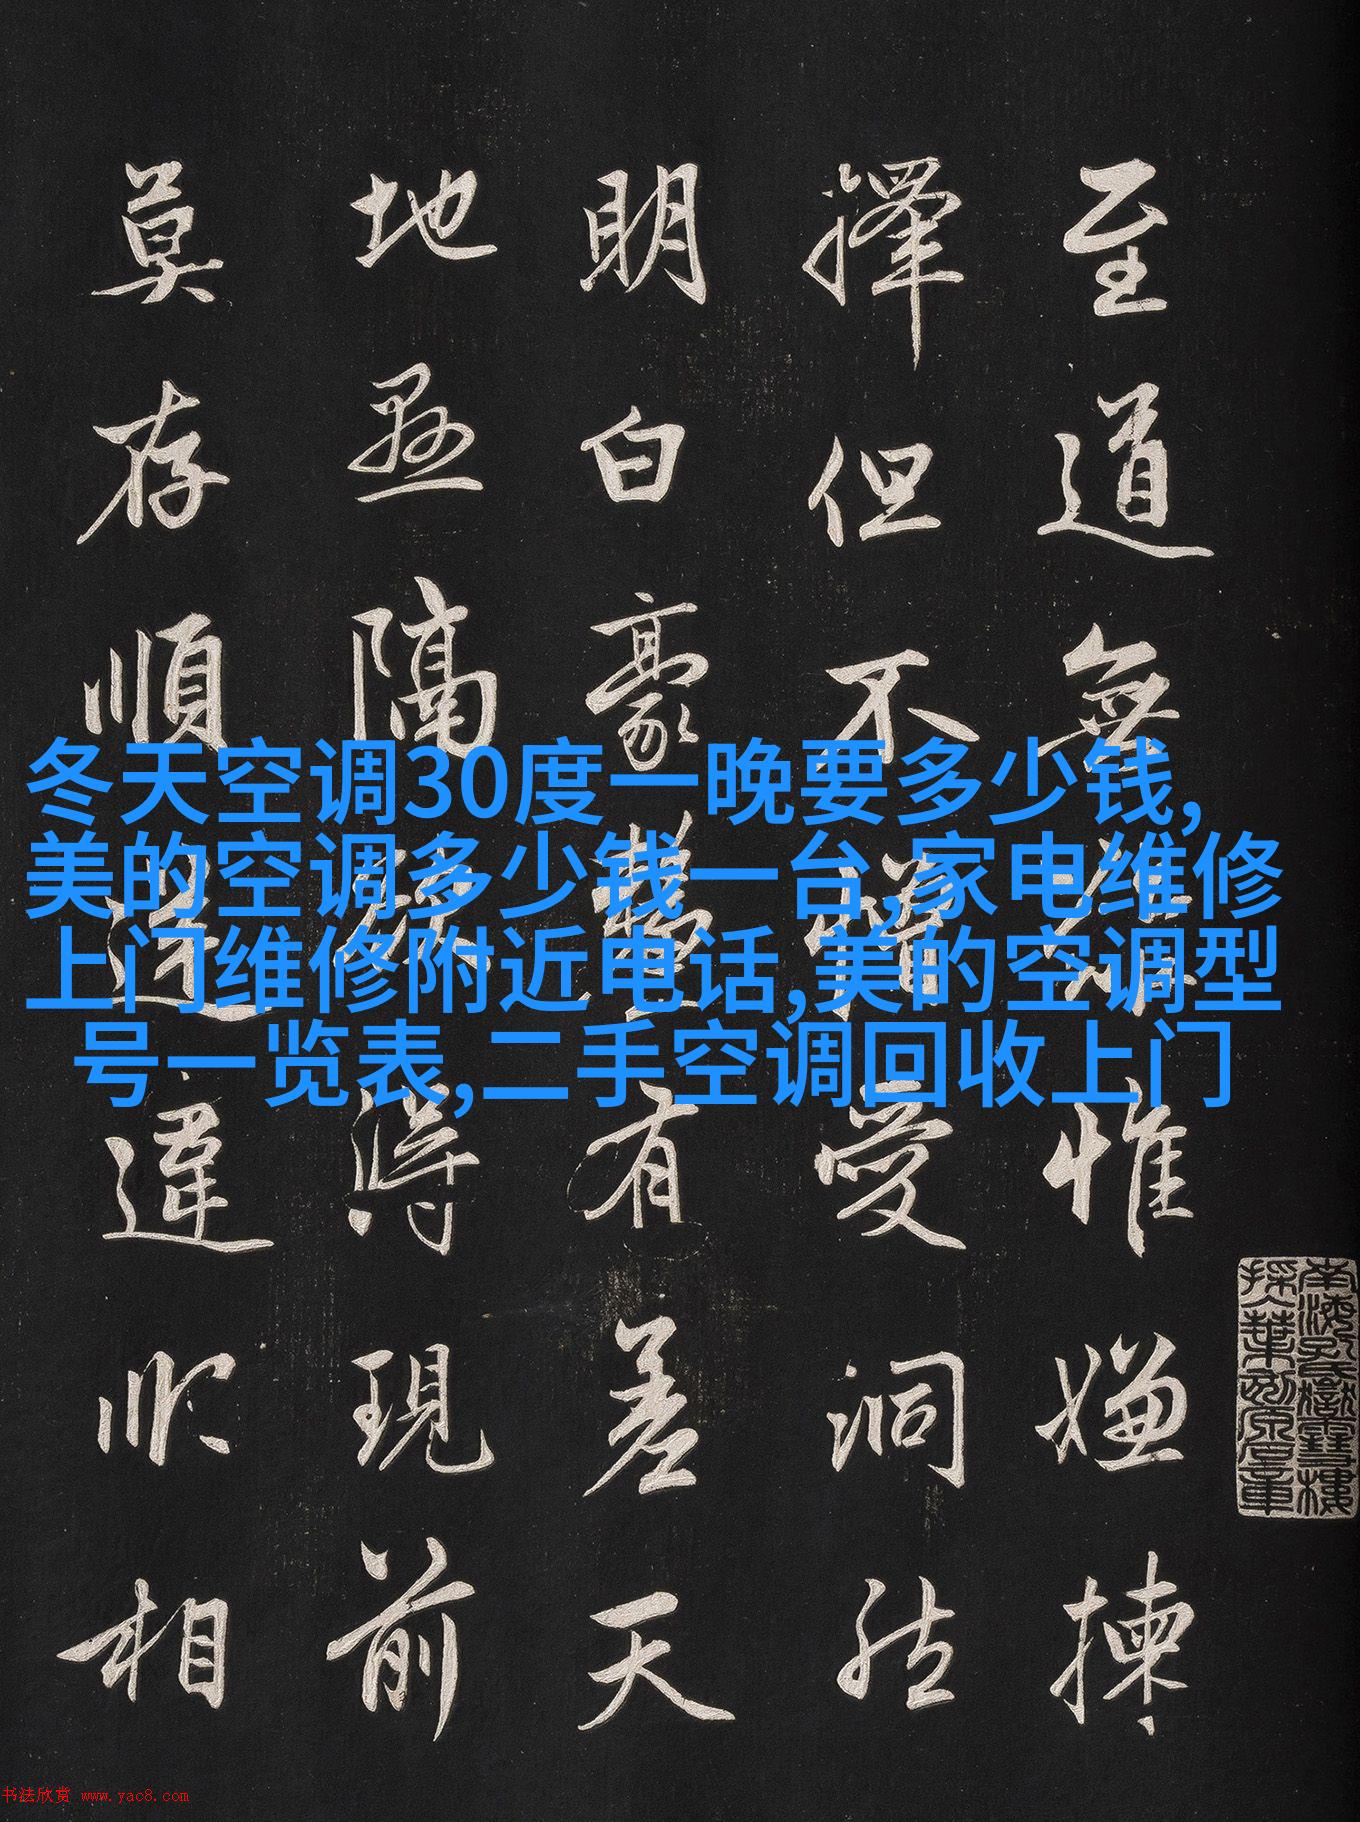 冬天空调30度一晚要多少钱,
美的空调多少钱一台,家电维修
上门维修附近电话,美的空调型
号一览表,二手空调回收上门
至道無難惟嫌揀
擇但不憎愛洞然
明白豪釐有差天
地懸隔欲得現前
莫存順逆違順相
南海孔氏嶽雪樓
书法欣赏 www.yac8.com